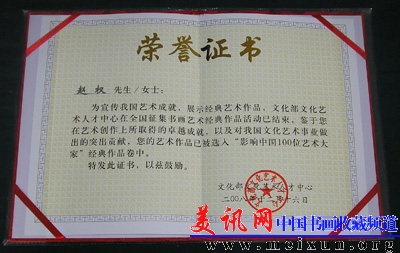 荣誉证书
赵权 先生/女士:
为宣传我国艺术成就,展示经典艺术作品,文化部文化艺
术人才中心在全国征集书画艺术经典作品活动已结束,鉴于您
在艺术创作上所取得的卓越成就,以及对我国文化艺术事业做
出的突出贡献,您的艺术作品已被选入“影响中国100位艺术大
家”经典作品卷中。
特发此证书,以兹鼓励。
文化部文化艺术人才中心
二00八年十二月十六日
美讯网 中国书画收藏频道
www.meixun.org